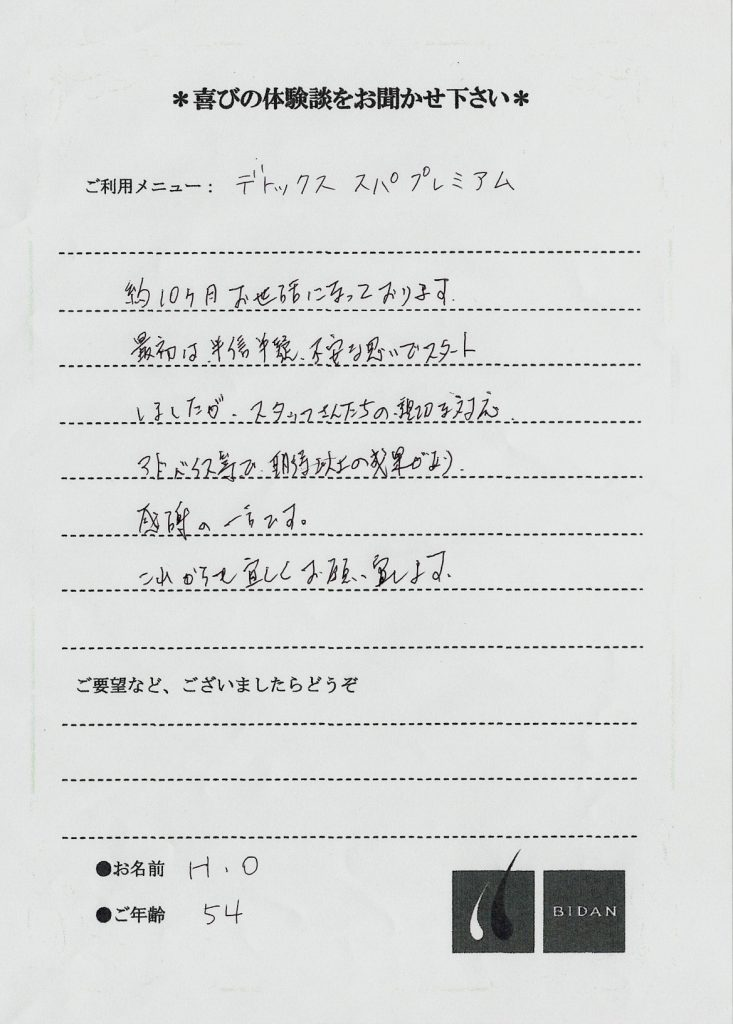 ＊喜びの体験談をお聞かせ下さい＊
ご利用メニュー： デトックス スパプレミアム
約10ヶ月お世話になっております.
最初は半信半疑、不安な思いでスタート
しましたが、スタッフさんたちの親切な対応、
アドバイス等で、期待以上の成果があり、
感謝の一言です。
これからも宜しくお願い致します.
ご要望など、ございましたらどうぞ
●お名前 H.O
●ご年齢 54
BIDAN